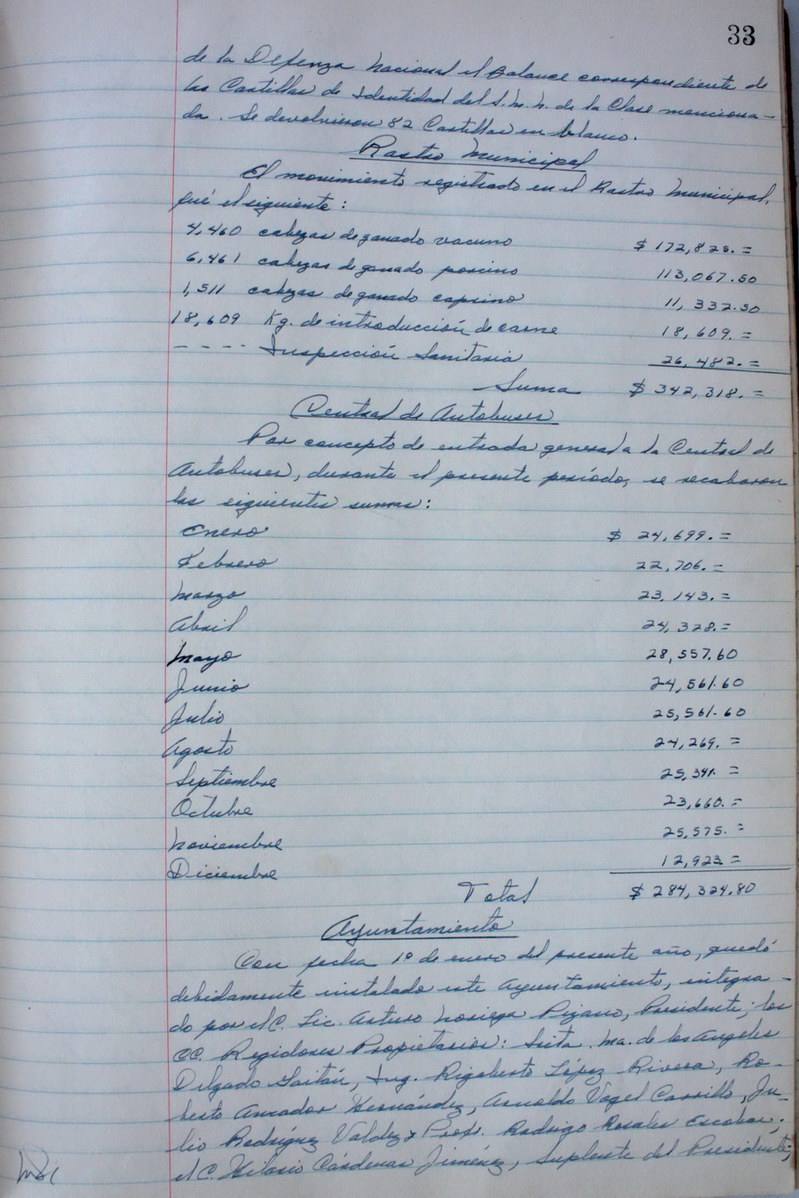 33
de la Defenza Nacional el Balance correspondiente de
las Cartillas de Identidad del S.M.N. de la Clase menciona-
da. Se devolvieron 82 Cartillas en blanco.
Rastro Municipal
El movimiento registrado en el Rastro Municipal,
fué el siguiente:
4,460 cabezas de ganado vacuno $ 172,828. =
6,461 cabezas de ganado porcino 113,067.50
1,511 cabezas de ganado caprino 11,332.50
18,609 Kg. de introducción de carne 18,609. =
- - - - Inspección Sanitaria 26,482. =
Suma $ 342,318. =
Central de Autobuses
Por concepto de entrada general a la Central de
Autobuses, durante el presente período, se recabaron
las siguientes sumas:
Enero $ 24,699. =
Febrero 22,706. =
Marzo 23,143. =
Abril 24,328. =
Mayo 28,557.60
Junio 24,561.60
Julio 25,561.60
Agosto 24,269. =
Septiembre 25,341. =
Octubre 23,660. =
Noviembre 25,575. =
Diciembre 12,923 =
Total $ 284,324.80
Ayuntamiento
Con fecha 1º de enero del presente año, quedó
debidamente instalado este Ayuntamiento, integra-
do por el C. Lic. Arturo Noriega Pizano, Presidente; los
CC. Regidores Propietarios: Srita. Ma. de los Angeles
Delgado Gaitán, Ing. Rigoberto López Rivera, Ro-
berto Amador Hernández, Arnoldo Vogel Carrillo, Ju-
lio Rodríguez Valdez y Profr. Rodrigo Rosales Escobar;
el C. Hilario Cárdenas Jiménez, Suplente del Presidente;